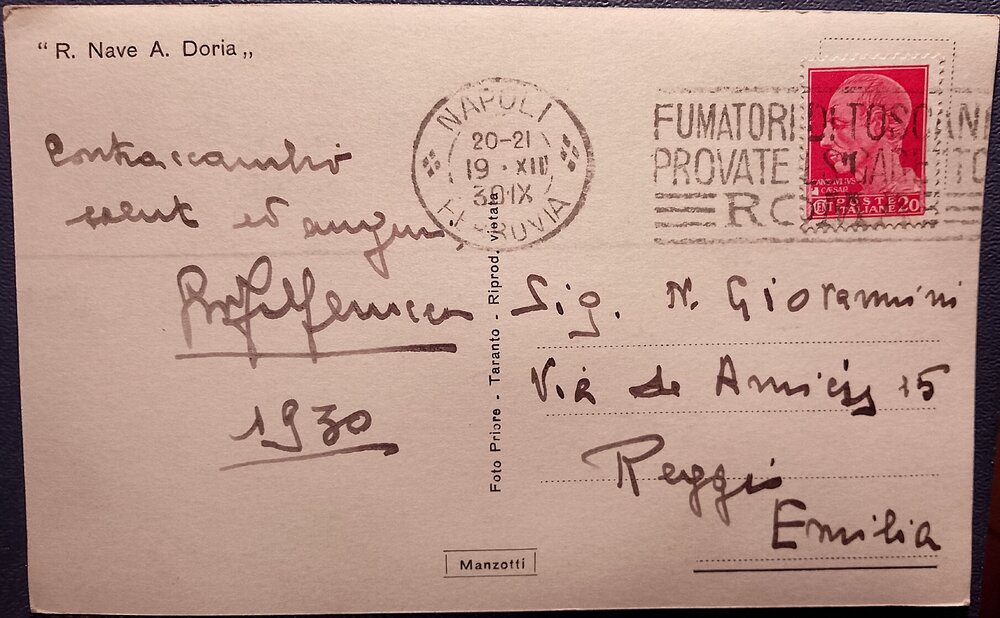 “ R. Nave A. Doria „
Contraccambio
salut ed auguri
1930
Foto Priore - Taranto - Riprod. vietata
Manzotti
NAPOLI
20-21
19 · XII
30 IX
FERROVIA
FUMATORI DI TOSCANI
PROVATE
POSTE
ITALIANE 20
CAESAR
Sig. N. Giovannini
Via de Amicis 15
Reggio
Emilia